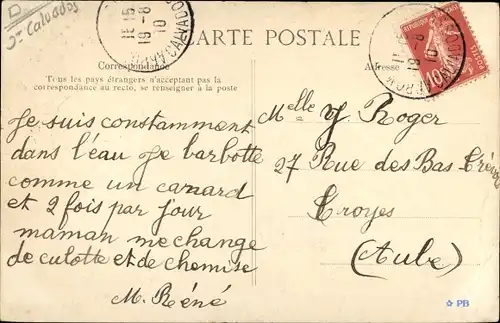 D.
St Calvados
11 15
19 -8
10
CALVADOS
CARTE POSTALE
Correspondance
Tous les pays étrangers n'acceptent pas la
correspondance au recto, se renseigner à la poste
Adresse
10
Je suis constamment
dans l'eau Je barbotte
comme un canard
et 2 fois par jour
maman me change
de culotte et de chemise
M. Réné
Melle Y Roger
27 Rue des Bas-Trévois
Troyes
(Aube)
PB